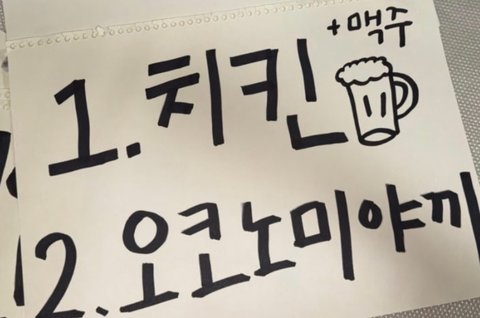 +맥주
1. 치킨
2. 오코노미야끼